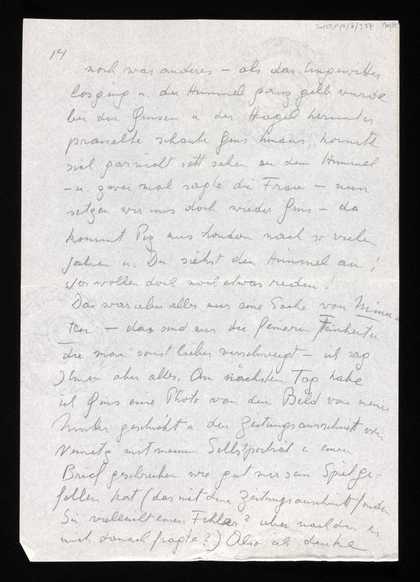 14
noch was anderes – als das Ungewitter
losging u. der Himmel ganz gelb wurde
bei den Blitzen u. der Hagel herunter
prasselte schaute hinaus, konnte
sich gar nicht satt sehen an dem Himmel
– u. zwei mal sagte die Frau – nun
setzen wir uns doch wieder hin – da
kommt aus London nach so vielen
Jahren u. Du siehst den Himmel an!
wir wollen doch noch etwas reden!
Das war aber alles nur eine Sache von Minu-
ten – das sind nur die Feinheiten
die man sonst lieber verschweigt – ich sag
Ihnen aber alles. Am nächsten Tag habe
ich eine Photo von dem Bild von meiner
Mutter geschickt u. den Zeitungsausschnitt
mit meinem Selbstporträt u. einen
Brief geschrieben wie gut mir sein
fallen hat (das mit dem Zeitungsausschnitt finden
Sie vielleicht einen Fehler? aber nachdem er
mich danach fragte?) Also ich denke